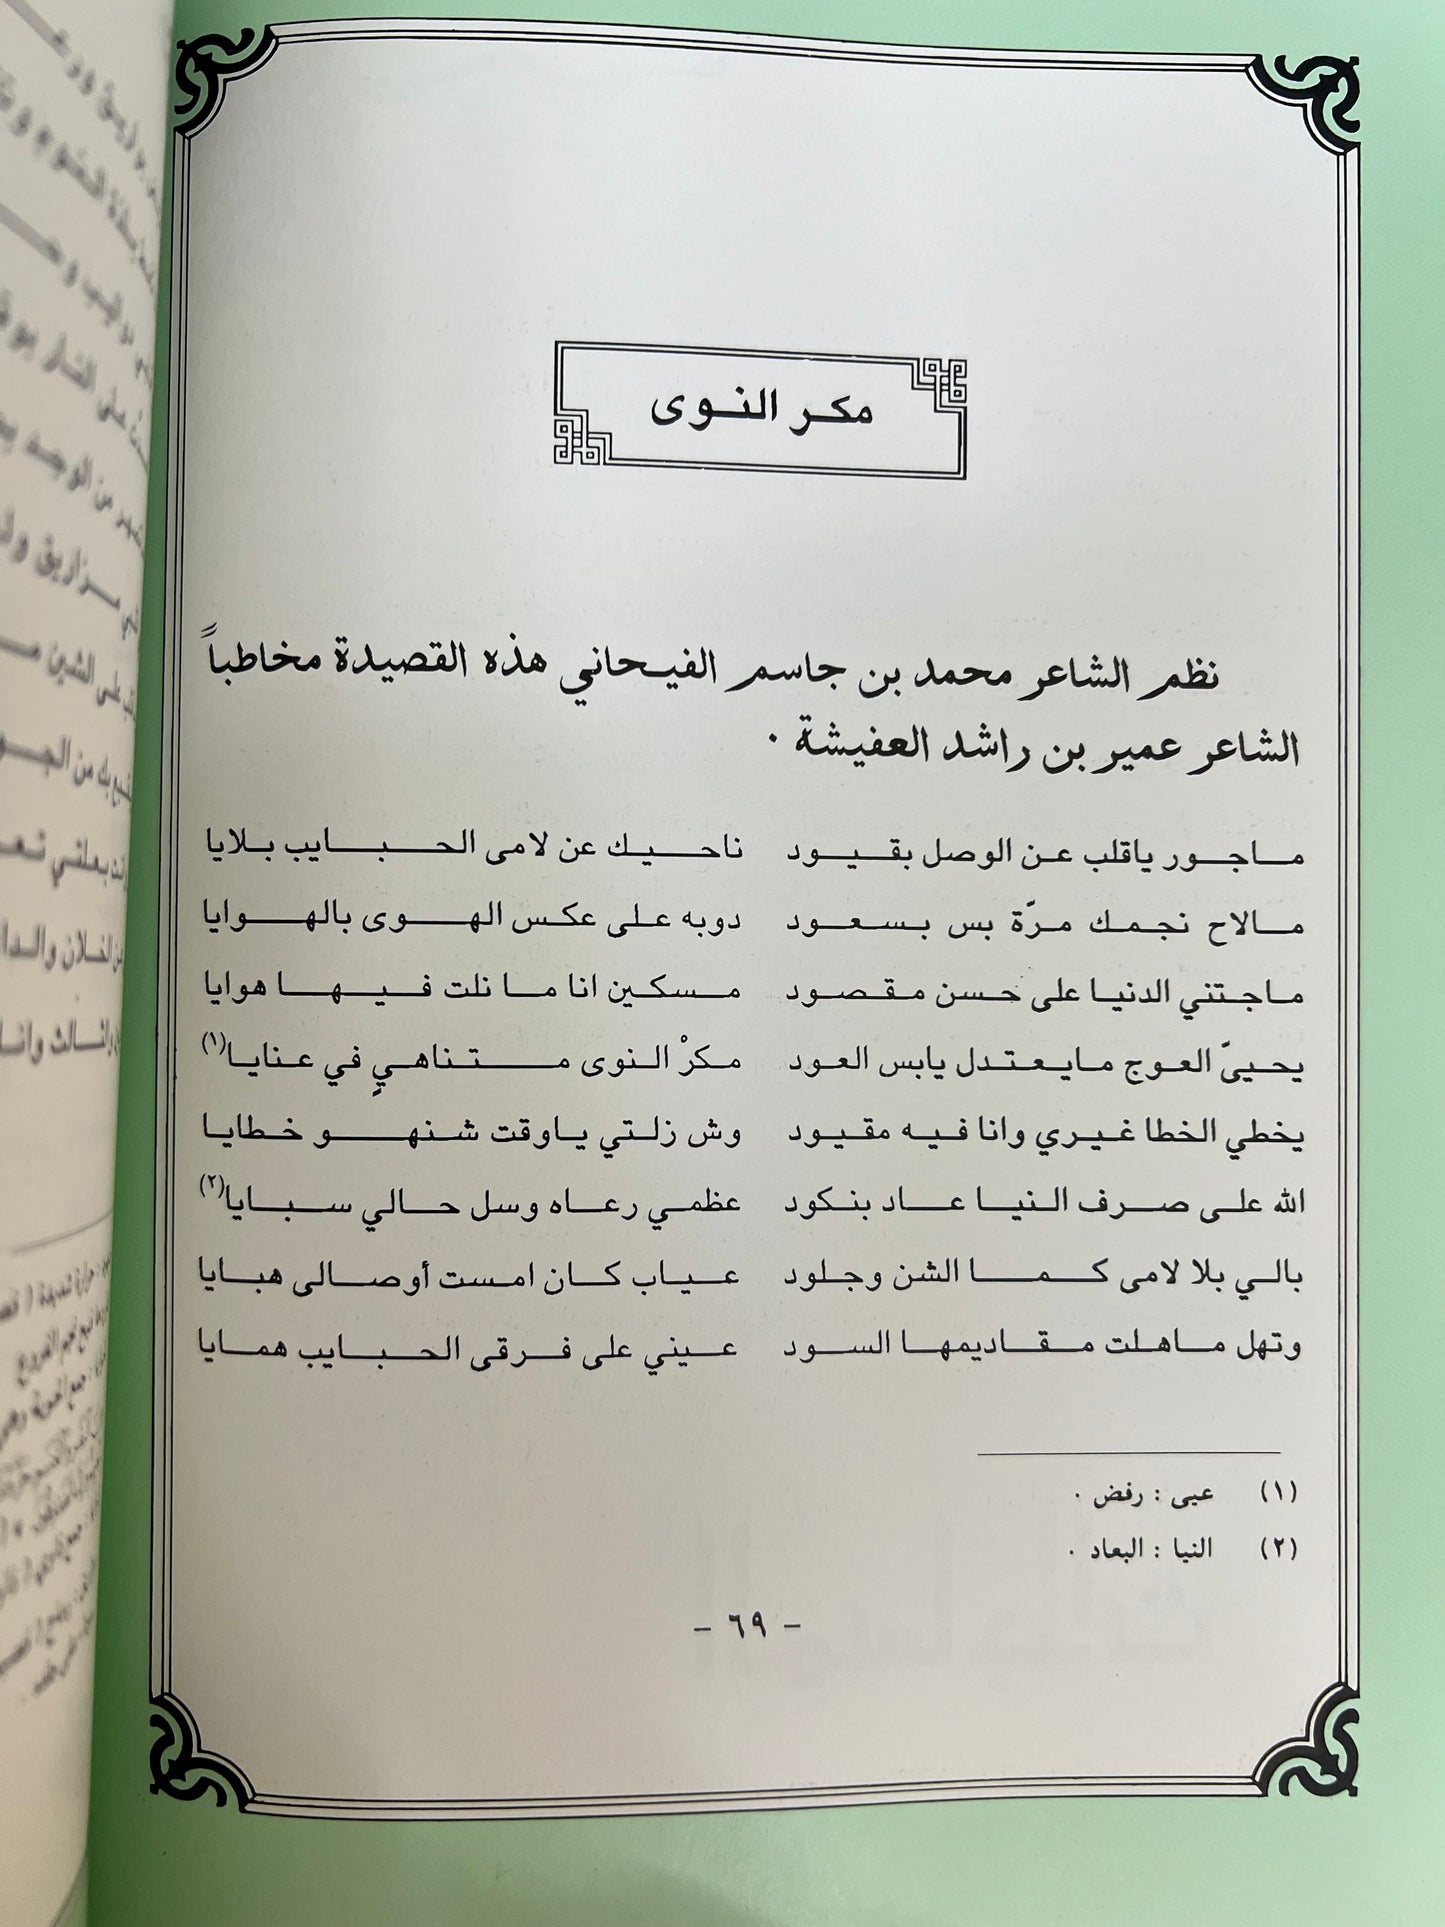 مكر النوى
نظم الشاعر محمد بن جاسم الفيحاني هذه القصيدة مخاطباً
الشاعر عمير بن راشد العفيشة .
ماجور ياقلب عن الوصل بقيود ناحيك عن لامى الحبايب بلايا
مالاح نجمك مرّة بس بسعود دوبه على عكس الهوى بالهوايا
ماجتني الدنيا على حسن مقصود مسكين انا ما نلت فيها هوايا
يحيىّ العوج مايعتدل يابس العود مكرْ النوى متناهيٍ في عنايا(١)
يخطي الخطا غيري وانا فيه مقيود وش زلتي ياوقت شنهو خطايا
الله على صرف النيا عاد بنكود عظمي رعاه وسل حالي سبايا(٢)
بالي بلا لامى كما الشن وجلود عياب كان امست أوصالى هبايا
وتهل ماهلت مقاديمها السود عيني على فرقى الحبايب همايا
(١) عيى : رفض .
(٢) النيا : البعاد .
- ٦٩ -